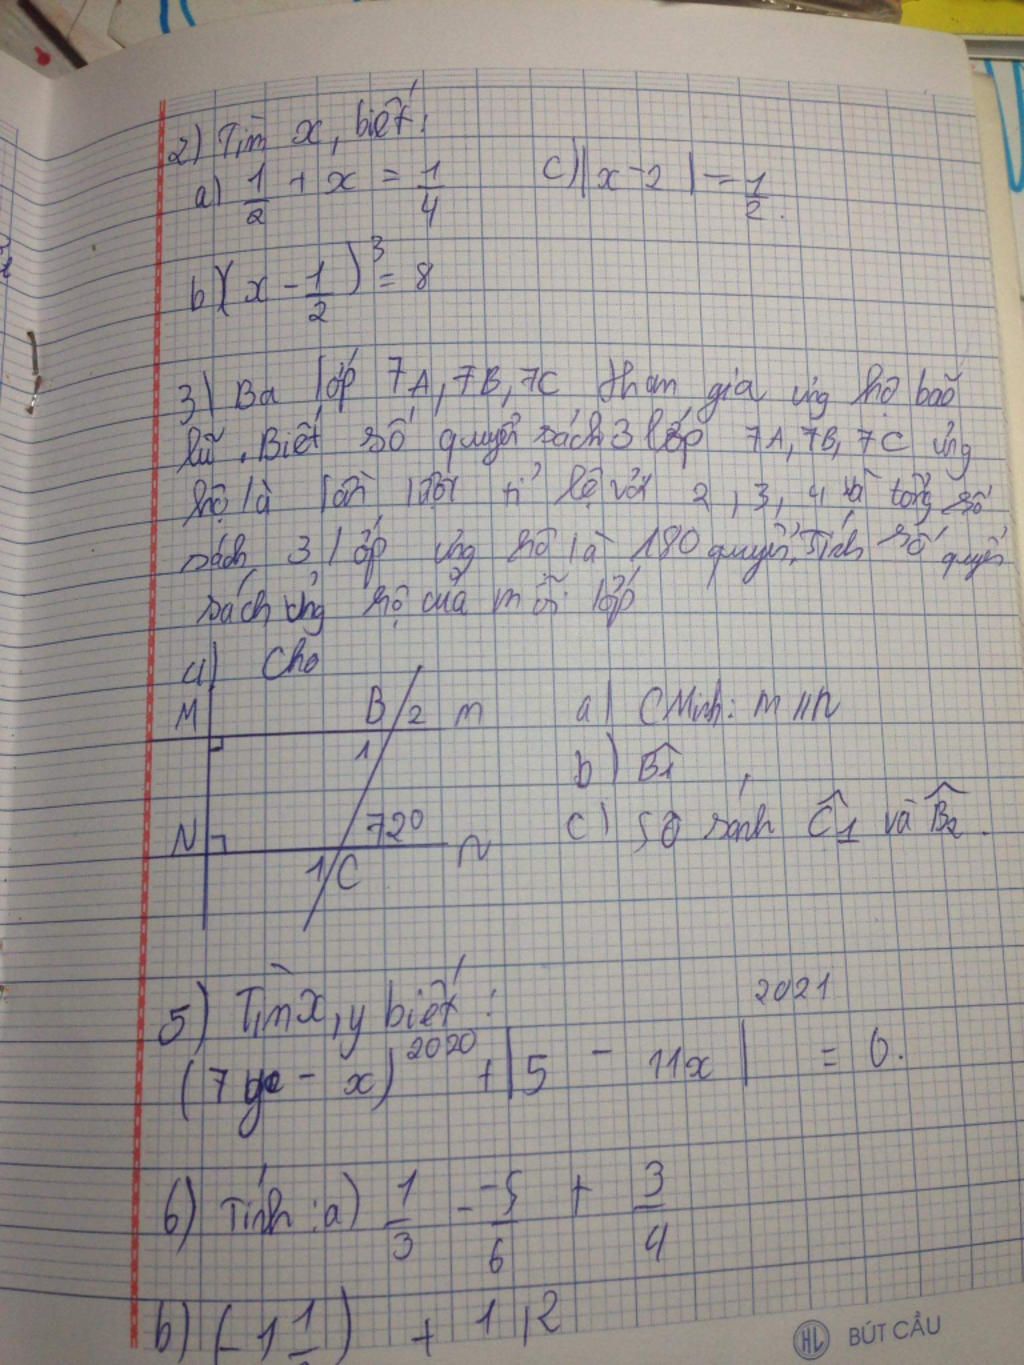 2) Tìm x, biết:
a) 1/2 + x = 1/4
c) |x - 2| = 1/2.
b) (x - 1/2)³ = 8
3) Ba lớp 7A, 7B, 7C tham gia ủng hộ bão
lũ. Biết số quyển sách 3 lớp 7A, 7B, 7C ủng
hộ là lần lượt tỉ lệ với 2, 3, 4 và tổng số
sách 3 lớp ủng hộ là 180 quyển. Tính số quyển
sách ủng hộ của mỗi lớp
4) Cho
M B 2 m
1
N 72° n
1 C
a) CMinh: m // n
b) B̂1
c) So sánh Ĉ1 và B̂2.
5) Tìm x, y biết:
(7y - x)²⁰²⁰ + |5 - 11x|²⁰²¹ = 0.
6) Tính: a) 1/3 - -5/6 + 3/4
b) (-1 1/ ) + 1,2
HL BÚT CẦU